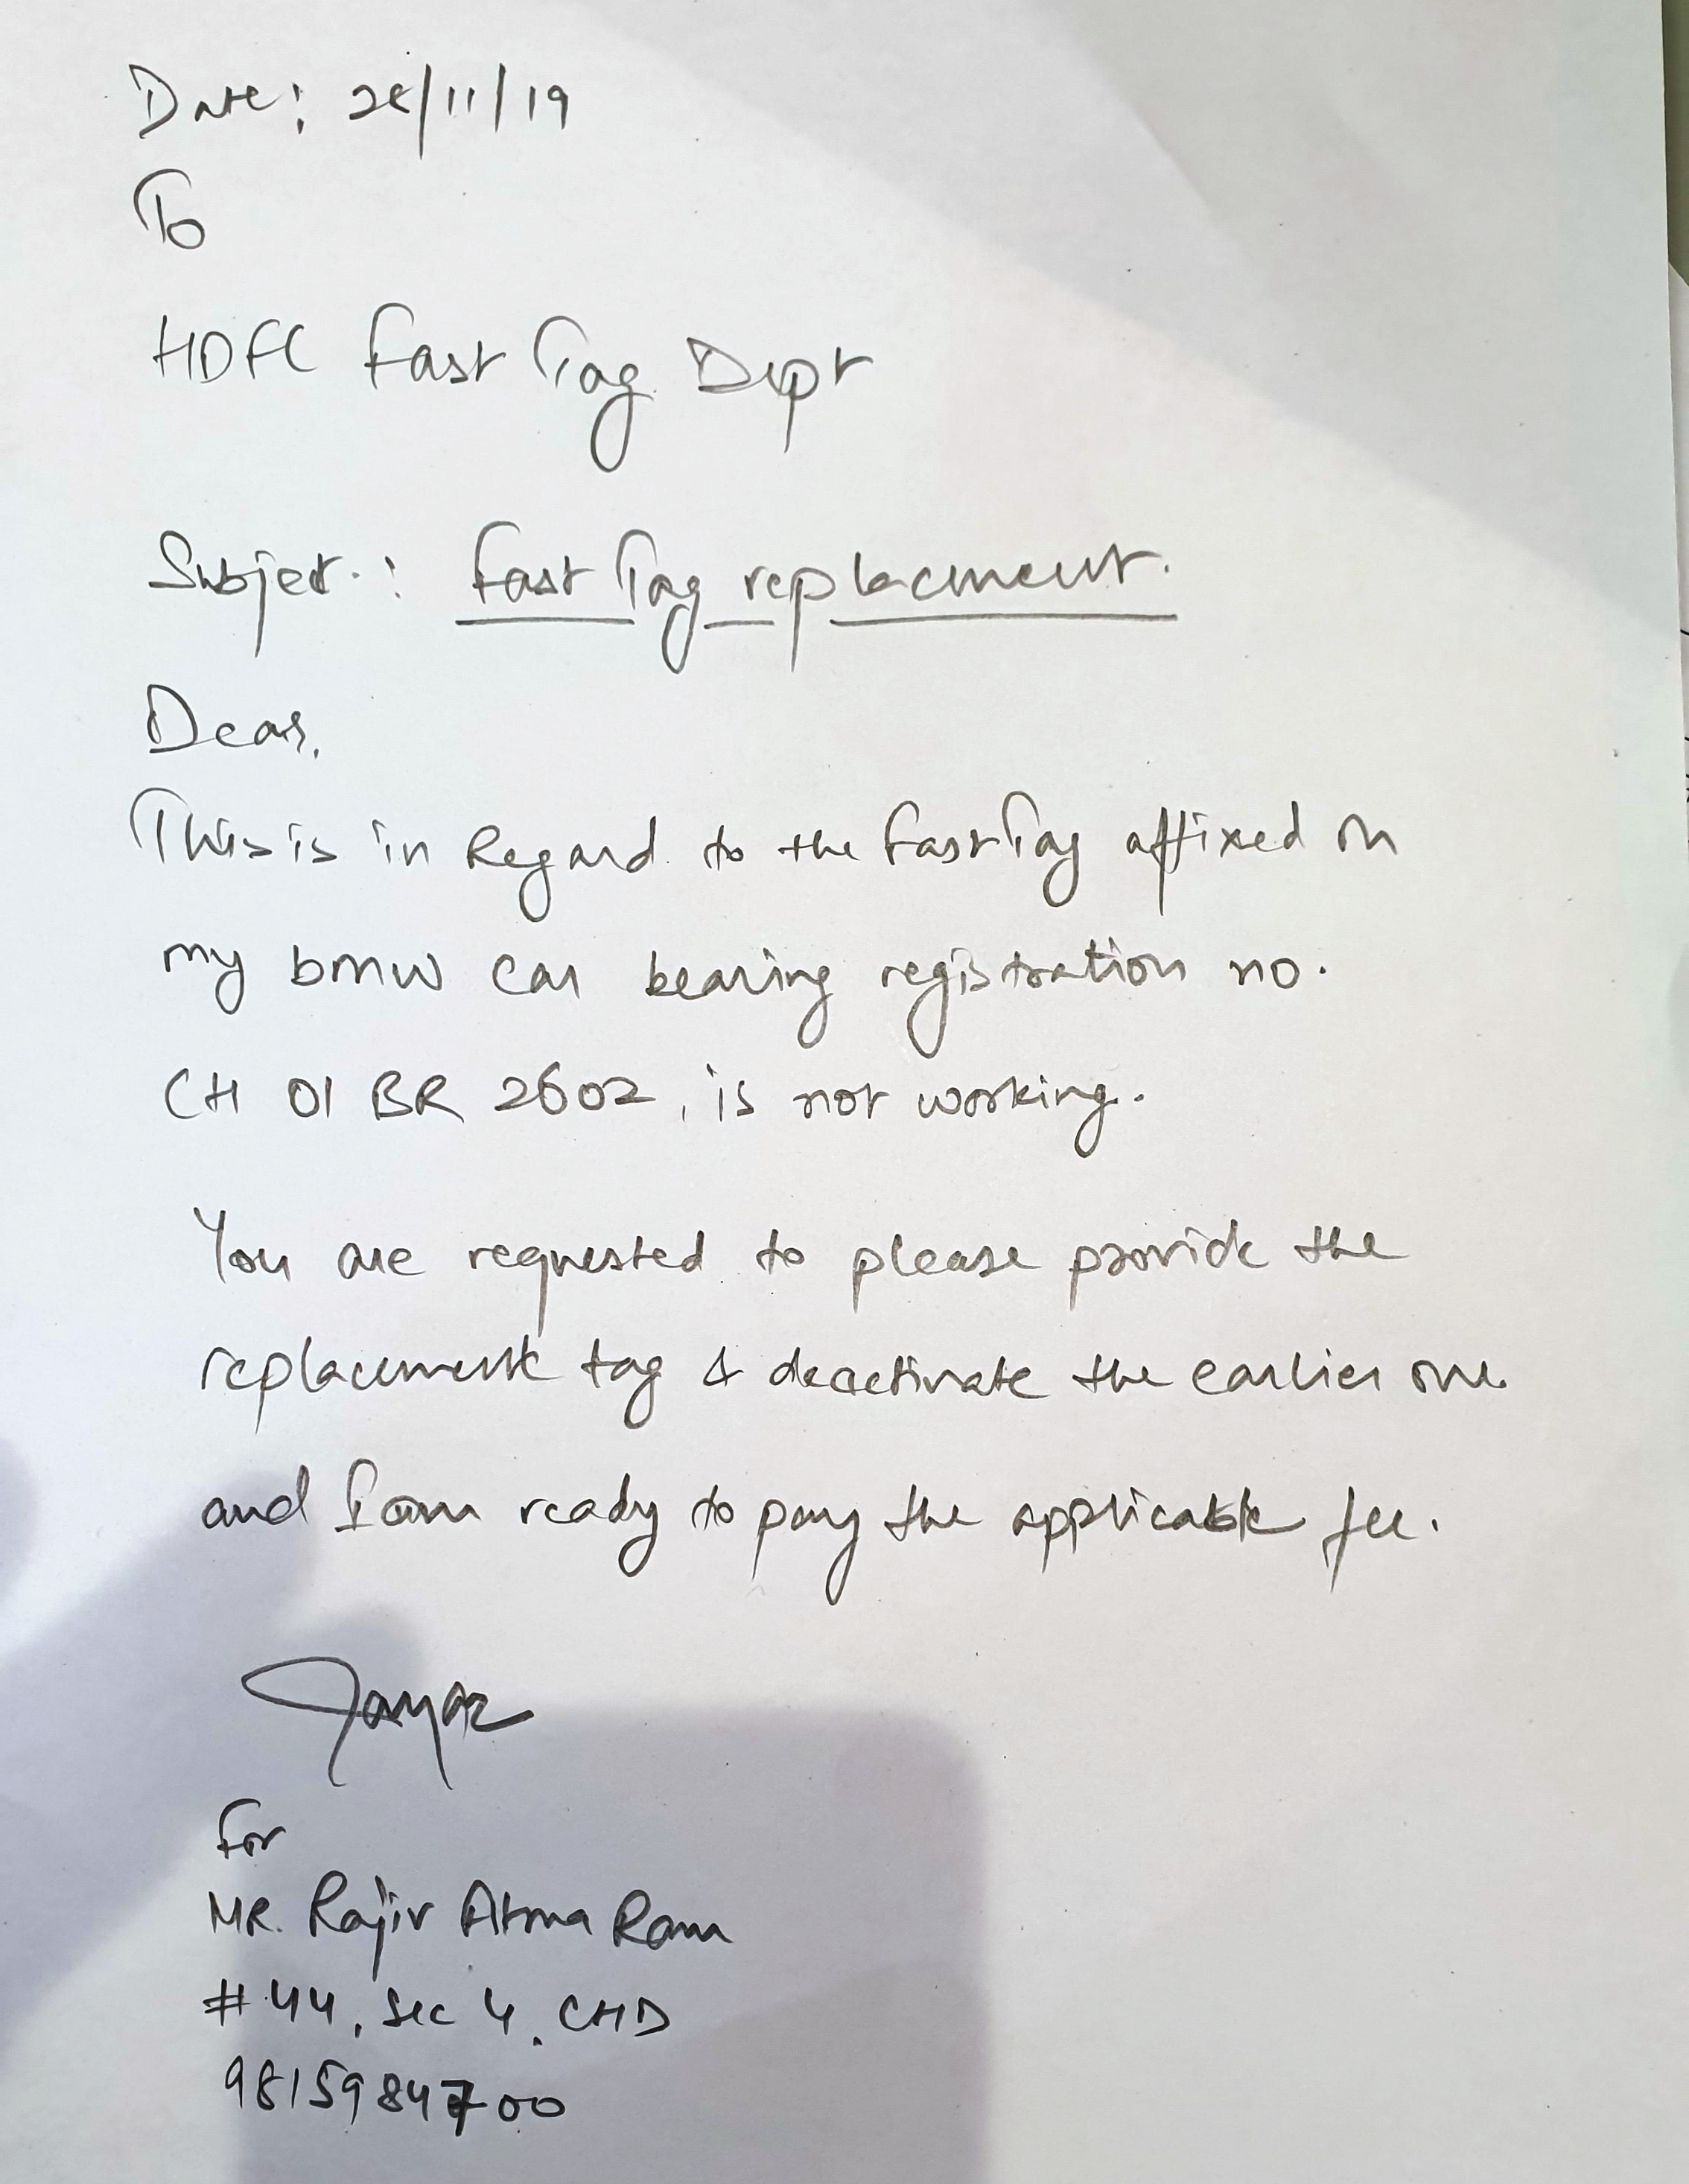 Date: 28/11/19
To
HDFC Fast Tag Dept
Subject.: Fast Tag replacement.
Dear,
This is in Regard to the FastTag affixed on
my bmw car bearing registration no.
CH 01 BR 2602, is not working.
You are requested to please provide the
replacement tag & deactivate the earlier one
and I am ready to pay the applicable fee.
For
MR. Rajiv Atma Ram
#44, Sec 4, CHD
9815984700